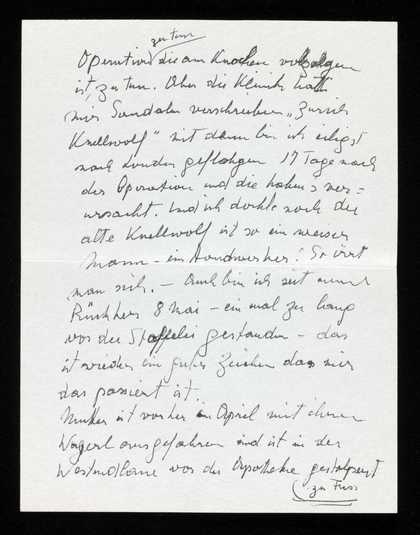 zu tun
Operativ die am Knochen vollzogen
ist, zu tun. Aber die Klinik hatte
mir Sandalen verschrieben „Zürich
Knellwolf" mit denen bin ich eiligst
nach London geflogen 17 Tage nach
der Operation und die haben's ver=
ursacht. Und ich dachte noch der
alte Knellwolf ist so ein weiser
Mann – ein Handwerker! So irrt
man sich. – Auch bin ich seit meiner
Rückkehr 8 Mai – ein mal zu lang
vor der Staffelei gestanden – das
ist wieder ein gutes Zeichen dass mir
das passiert ist.
Mutter ist vorher im April mit ihrem
Wagerl ausgefahren und ist in der
vor der Apotheke gestolpert
zu Fuss